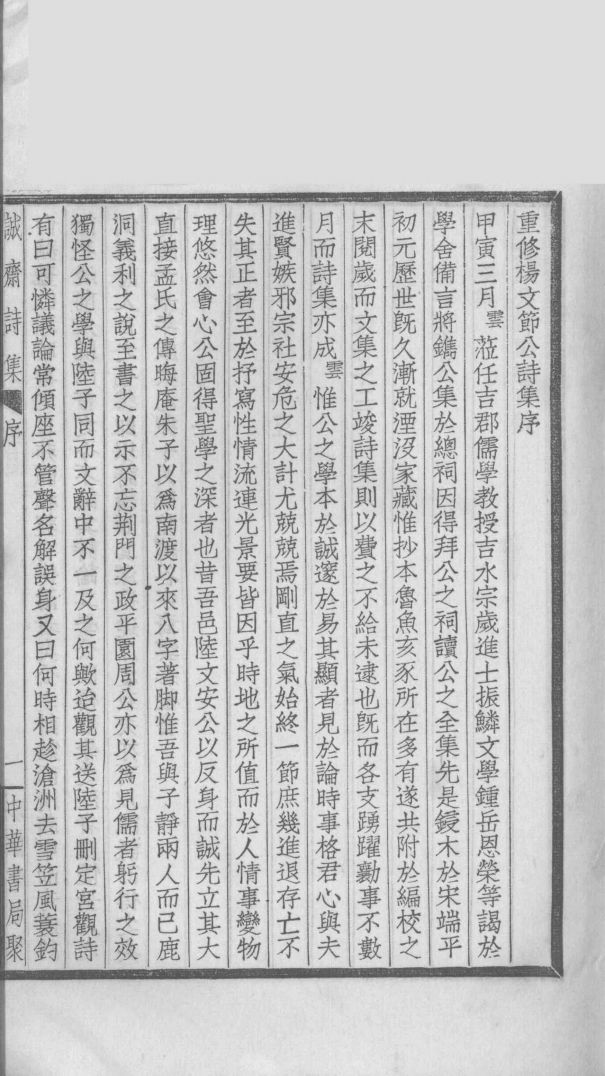 重修楊文節公詩集序
甲寅三月雲蒞任吉郡儒學教授吉水宗歲進士振鱗文學鍾岳恩榮等謁於
學舍備言將鐫公集於總祠因得拜公之祠讀公之全集先是鋟木於宋端平
初元歷世旣久漸就湮沒家藏惟抄本魯魚亥豕所在多有遂共附於編校之
末閱歲而文集之工竣詩集則以費之不給未逮也旣而各支踴躍勷事不數
月而詩集亦成雲惟公之學本於誠邃於易其顯者見於論時事格君心與夫
進賢嫉邪宗社安危之大計尤兢兢焉剛直之氣始終一節庶幾進退存亡不
失其正者至於抒寫性情流連光景要皆因乎時地之所值而於人情事變物
理悠然會心公固得聖學之深者也昔吾邑陸文安公以反身而誠先立其大
直接孟氏之傳晦庵朱子以爲南渡以來八字著脚惟吾與子靜兩人而已鹿
洞義利之說至書之以示不忘荆門之政平園周公亦以爲見儒者躬行之效
獨怪公之學與陸子同而文辭中不一及之何歟迨觀其送陸子刪定宮觀詩
有曰可憐議論常傾座不管聲名解誤身又曰何時相趁滄洲去雪笠風蓑釣
誠齋詩集 序 一 中華書局聚